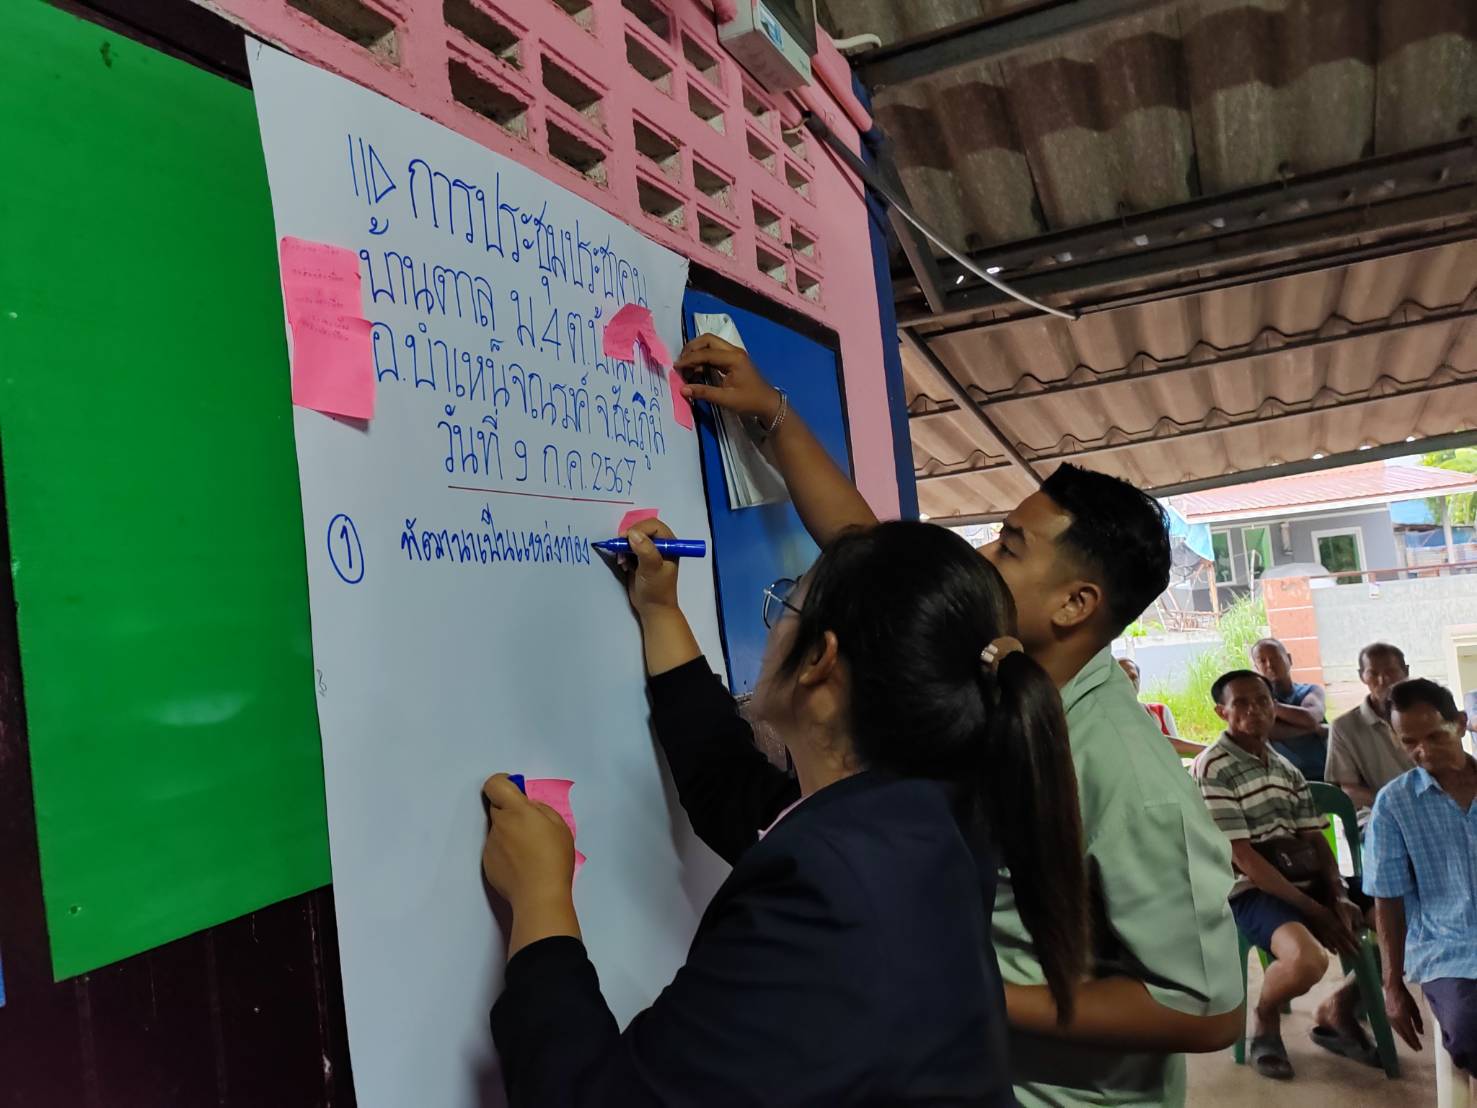 การประชุมประชาคม
บ้านตาล ม.4 ต.บ้านตาล
อ.บำเหน็จณรงค์ จ.ชัยภูมิ
วันที่ 9 ก.ค. 2567
1 พัฒนาเป็นแหล่งท่อง